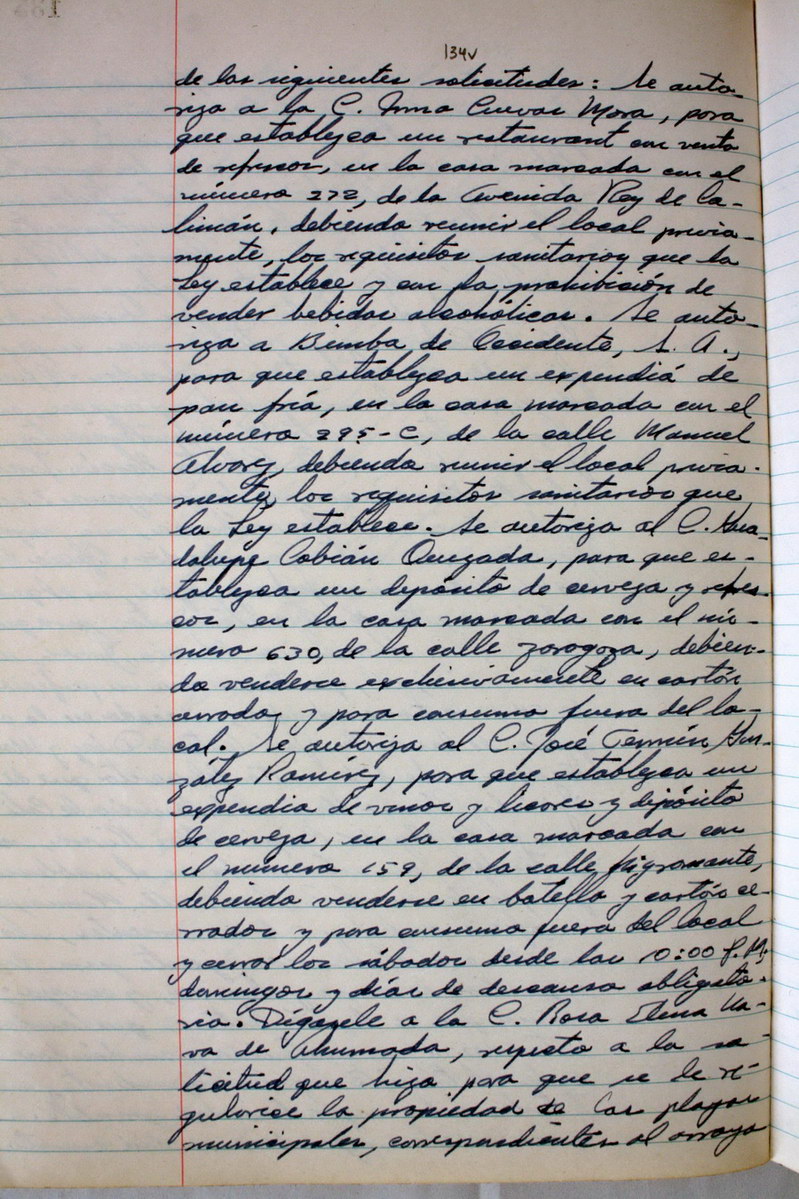 134v
de las siguientes solicitudes: Se auto-
riza a la C. Irma Cuevas Mora, para
que establezca un restaurant con venta
de refrescos, en la casa marcada con el
número 272, de la Avenida Rey de Co-
limán, debiendo reunir el local previa-
mente, los requisitos sanitarios que la
Ley establece y con la prohibición de
vender bebidas alcohólicas. Se auto-
riza a Bimbo de Occidente, S. A.,
para que establezca un expendio de
pan frío, en la casa marcada con el
número 295-C, de la calle Manuel
Alvarez, debiendo reunir el local previa-
mente, los requisitos sanitarios que
la Ley establece. Se autoriza al C. Gua-
dalupe Cobián Quezada, para que es-
tablezca un depósito de cerveza y refres-
cos, en la casa marcada con el nú-
mero 630, de la calle Zaragoza, debien-
do venderse exclusivamente en cartón
cerrado, y para consumo fuera del lo-
cal. Se autoriza al C. José Fermín Gon-
zález Ramírez, para que establezca un
expendio de vinos y licores y depósito
de cerveza, en la casa marcada con
el número 159, de la calle Nigromante,
debiendo venderse en botella y cartón ce-
rrados y para consumo fuera del local
y cerrar los sábados desde las 10:00 P.M.,
domingos y días de descanso obligato-
rio. Dígasele a la C. Rosa Elena Na-
va de Ahumada, respecto a la so-
licitud que hizo para que se le re-
gularice la propiedad de las playas
municipales, correspondientes al arroyo